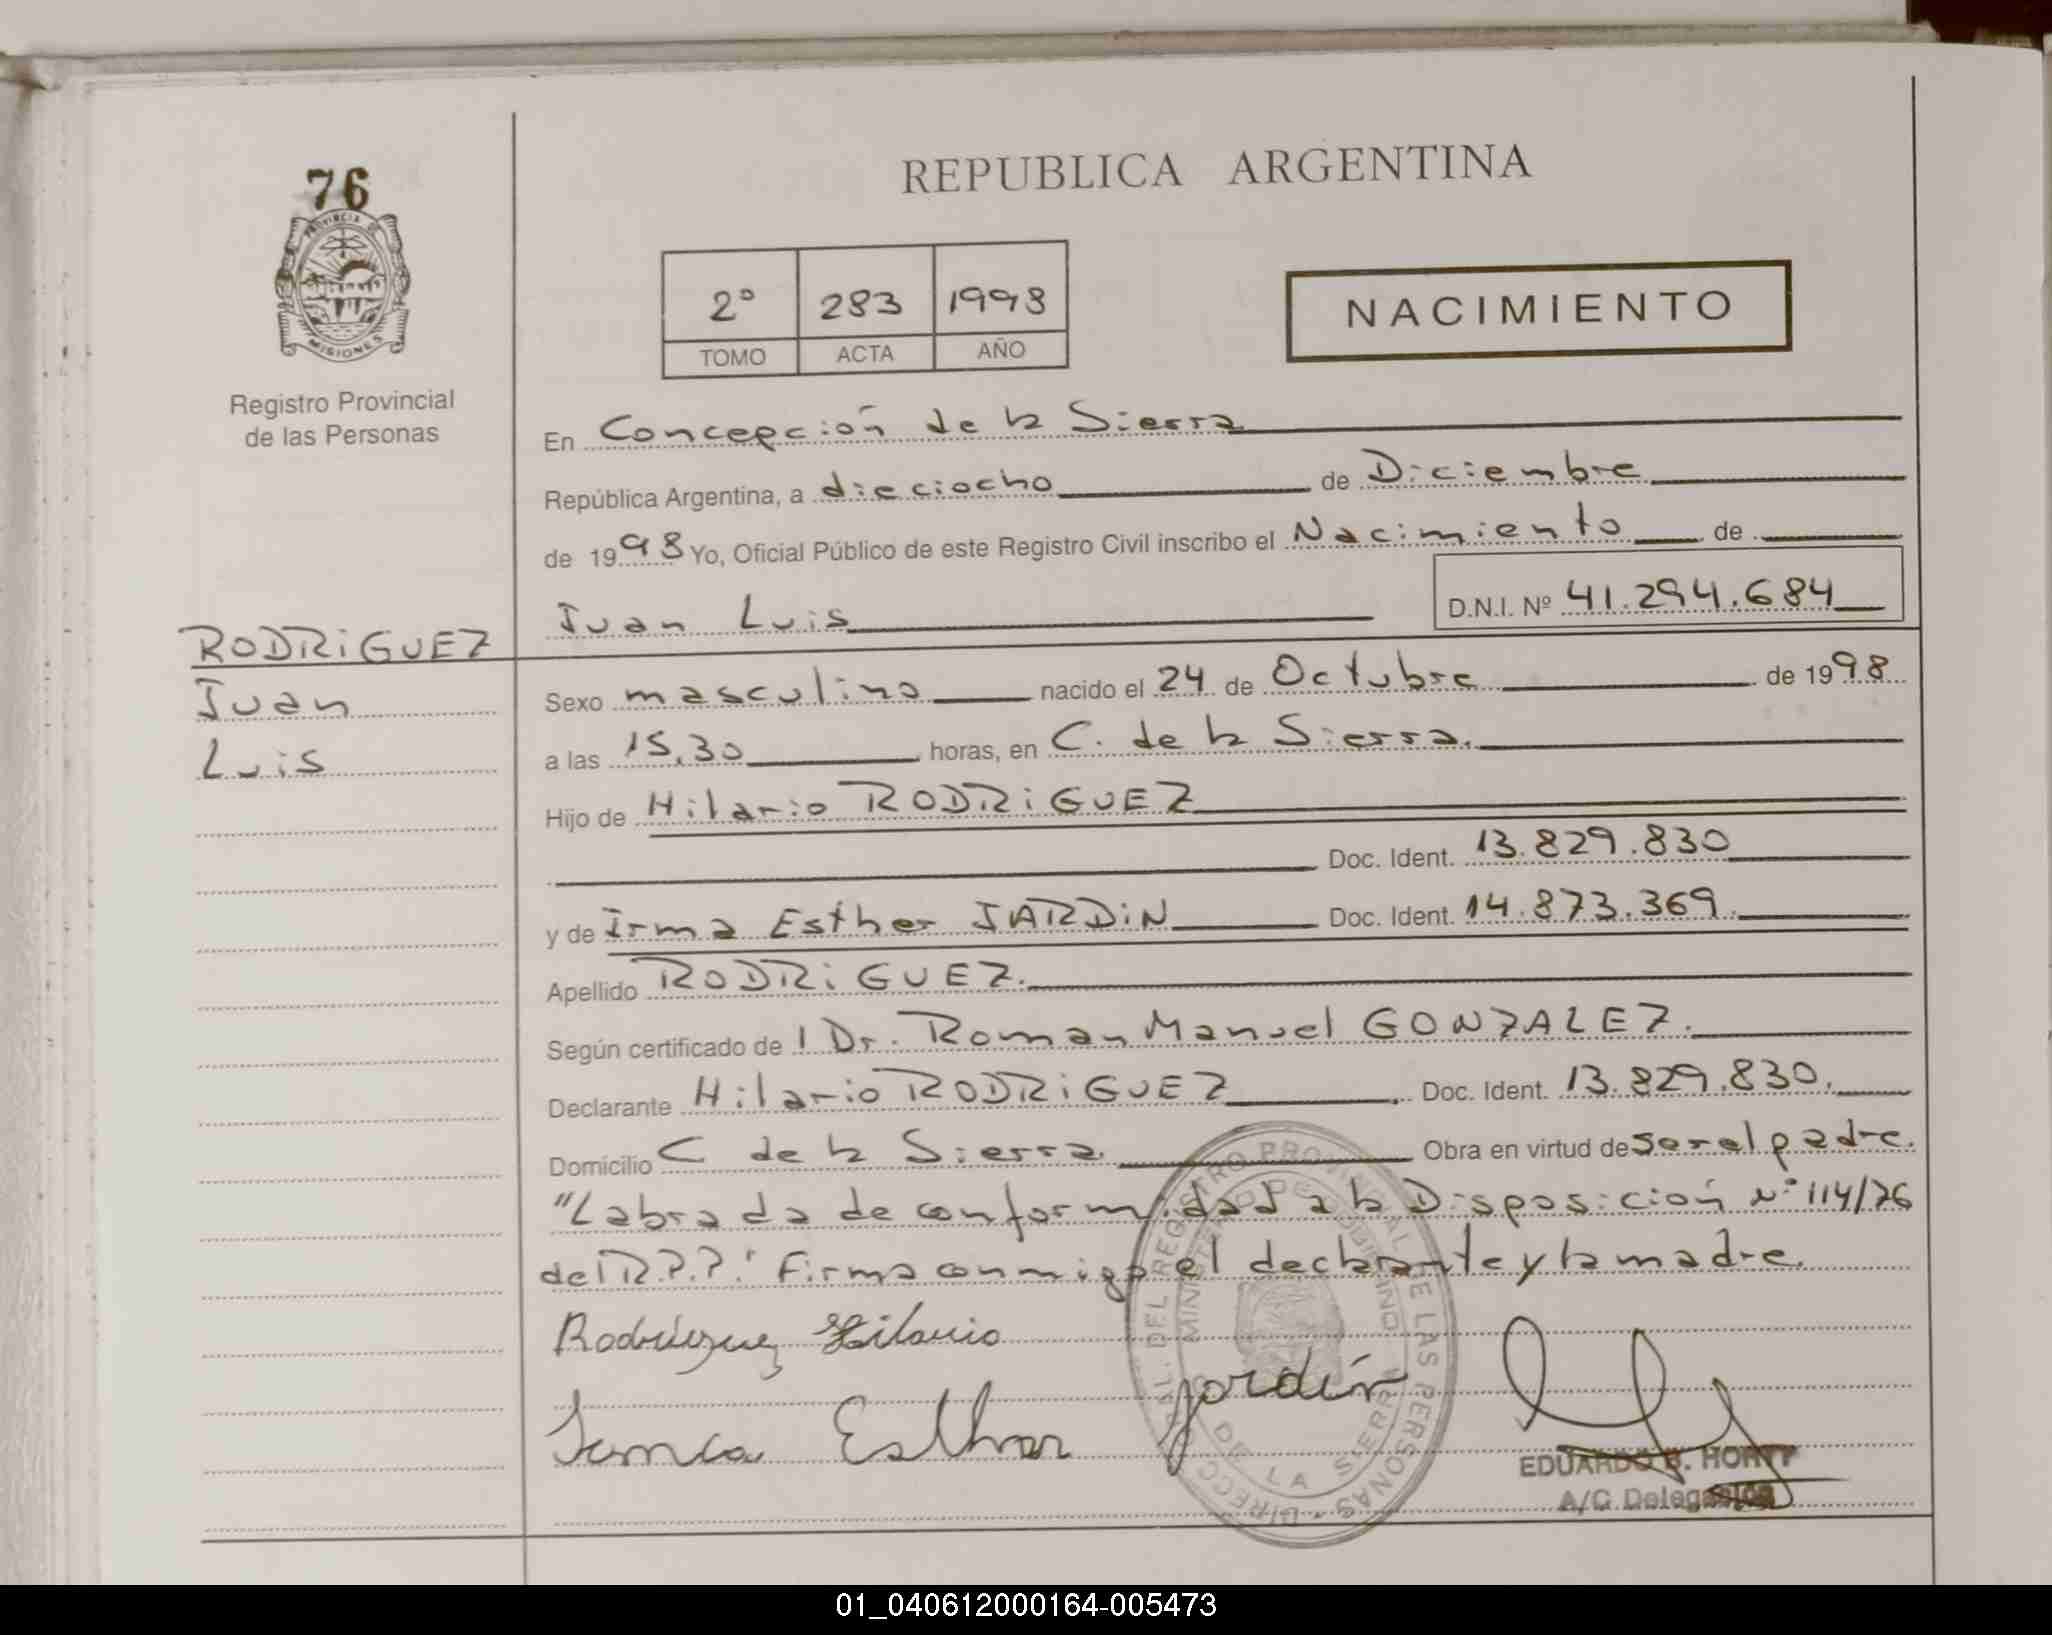 76
PROVINCIA DE
MISIONES
Registro Provincial
de las Personas
RODRiGUEZ
Juan
Luis
REPUBLICA ARGENTINA
2º 283 1998
TOMO ACTA AÑO
NACIMIENTO
En Concepción de la Sierra
República Argentina, a dieciocho de Diciembre
de 1998 Yo, Oficial Público de este Registro Civil inscribo el Nacimiento de
Juan Luis D.N.I. Nº 41.294.684
Sexo masculino nacido el 24 de Octubre de 1998
a las 15,30 horas, en C. de la Sierra.
Hijo de Hilario RODRiGUEZ
Doc. Ident. 13.829.830
y de Irma Esther JARDiN Doc. Ident. 14.873.369.
Apellido RODRiGUEZ.
Según certificado de l Dr. Roman Manuel GONZALEZ.
Declarante Hilario RODRiGUEZ Doc. Ident. 13.829.830.
Domicilio C de la Sierra. Obra en virtud de ser el padre.
"Labrada de conformidad a la Disposición Nº 114/76
del R.P.P." Firma conmigo el declarante y la madre.
Rodríguez Hilario
Irma Esther Jardín
DEL REGISTRO PROVINCIAL DE LAS PERSONAS
MINISTERIO DE GOBIERNO
DE LA SIERRA
EDUARDO B. HORTT
A/C Delegación
01_040612000164-005473